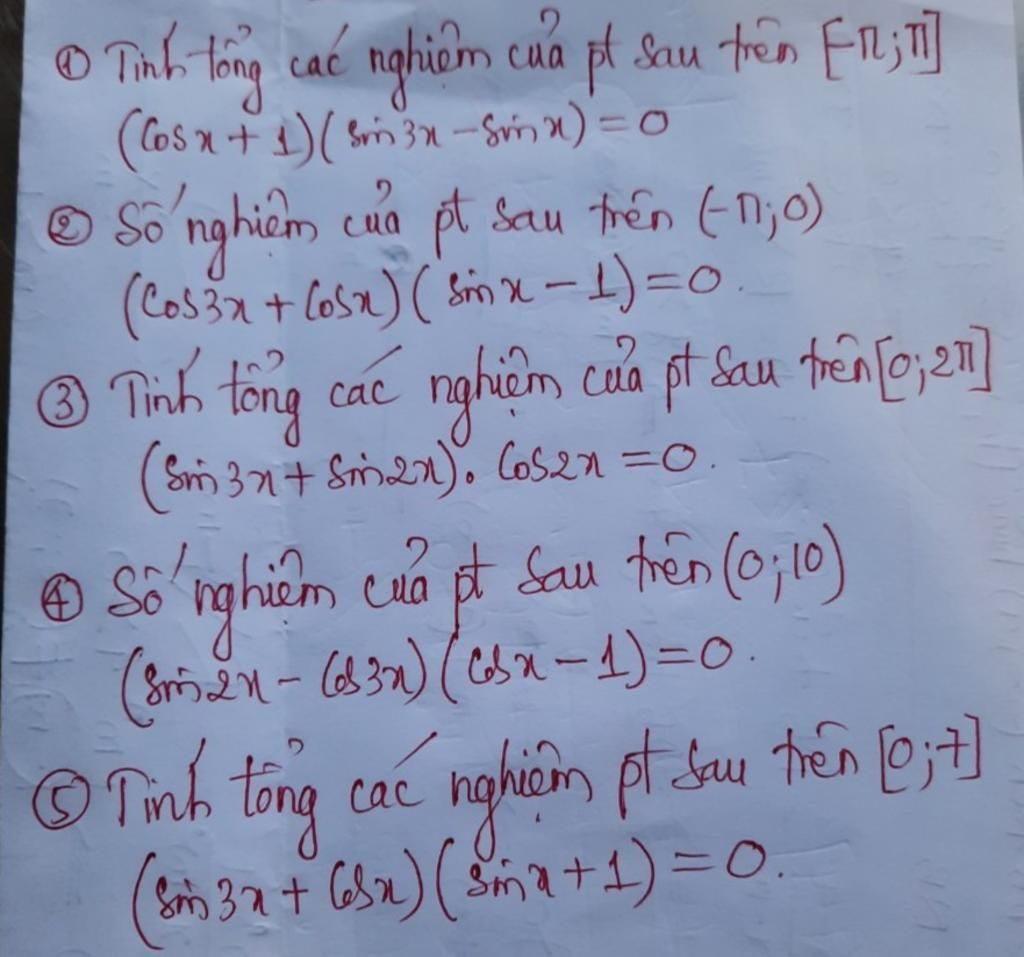 ① Tính tổng các nghiệm của pt sau trên [-π; π]
(cosx + 1)(sin3x - sinx) = 0
② Số nghiệm của pt sau trên (-π; 0)
(cos3x + cosx)(sinx - 1) = 0.
③ Tính tổng các nghiệm của pt sau trên [0; 2π]
(sin3x + sin2x). cos2x = 0.
④ Số nghiệm của pt sau trên (0; 10)
(sin2x - cos3x)(cosx - 1) = 0.
⑤ Tính tổng các nghiệm pt sau trên [0; 7]
(sin3x + cosx)(sinx + 1) = 0.